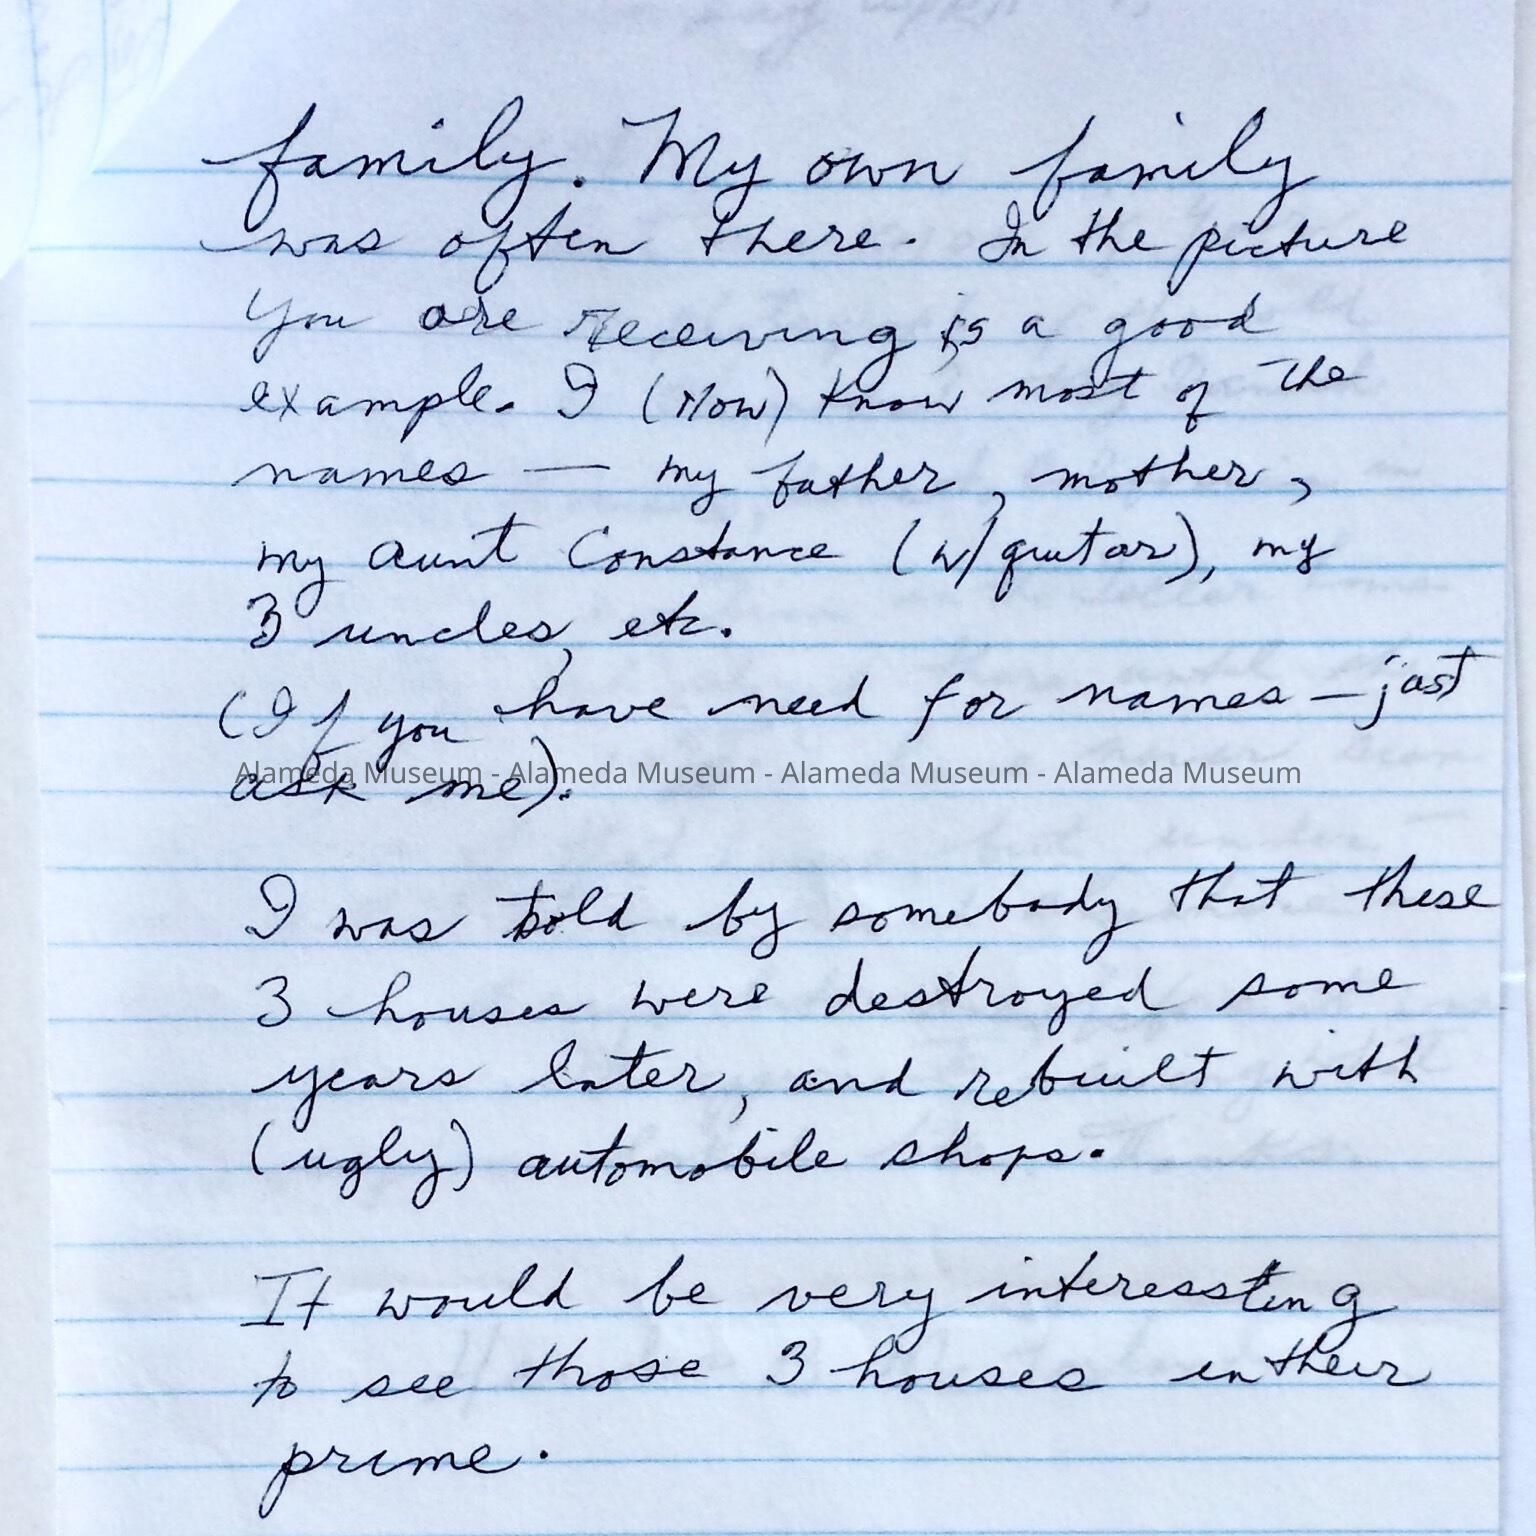 family. My own family
was often there. In the picture
you are receiving is a good
example. I (now) know most of the
names — my father, mother,
my aunt Constance (w/guitar), my
3 uncles, etc.
(If you have need for names — just
Alameda Museum - Alameda Museum - Alameda Museum - Alameda Museum
ask me).
I was told by somebody that these
3 houses were destroyed some
years later, and rebuilt with
(ugly) automobile shops.
It would be very interessting
to see those 3 houses in their
prime.